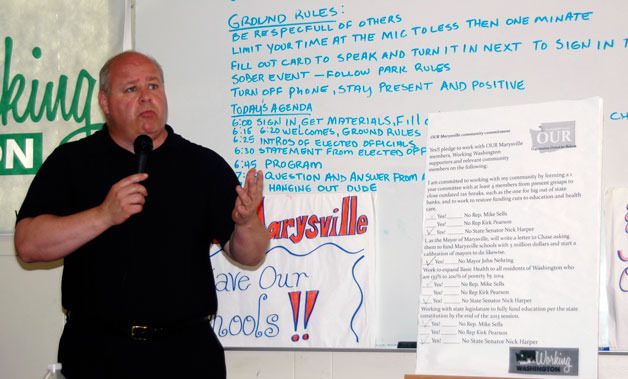 Ground Rules:
BE RESPECFULL OF OTHERS
LIMIT YOUR TIME AT THE MIC TO LESS THEN ONE MINATE
FILL OUT CARD TO SPEAK AND TURN IT IN NEXT TO SIGN IN
SOBER EVENT — FOLLOW PARK RULES
TURN OFF PHONE, STAY PRESENT AND POSITIVE
TODAY'S AGENDA
6:00 SIGN IN, GET MATERIALS, Fill
6:15 6:20 WELCOMES, GROUND RULES
6:25 INTROS OF ELECTED OFFICIALS
6:30 STATEMENT FROM ELECTED OFF
6:45 PROGRAM
QUESTION AND ANSWER FROM
HANGING OUT DUDE
king
ON
Marysville
ave Our
hools!!
OUR Marysville community commitment
OUR
You'll pledge to work with OUR Marysville
members, Working Washington
supporters and relevant community
members on the following:
I am committed to working with my community by forming a 1
year committee with at least 4 members from present groups to
close outdated tax breaks, such as the one for big out of state
banks, and to work to restore funding cuts to education and health
care.
Yes! No Rep. Mike Sells
Yes! No Rep Kirk Pearson
Yes! No State Senator Nick Harper
I, as the Mayor of Marysville, will write a letter to Chase asking
them to fund Marysville schools with 5 million dollars and start a
calibration of mayors to do likewise.
Yes! No Mayor John Nehring
Work to expand Basic Health to all residents of Washington who
are 133% to 200% of poverty by 2014
Yes! No Rep. Mike Sells
Yes! No Rep Kirk Pearson
Yes! No State Senator Nick Harper
Working with state legislature to fully fund education per the state
constitution by the end of the 2013 session.
Yes! No Rep. Mike Sells
Yes! No Rep Kirk Pearson
Yes! No State Senator Nick Harper
Working
WASHINGTON